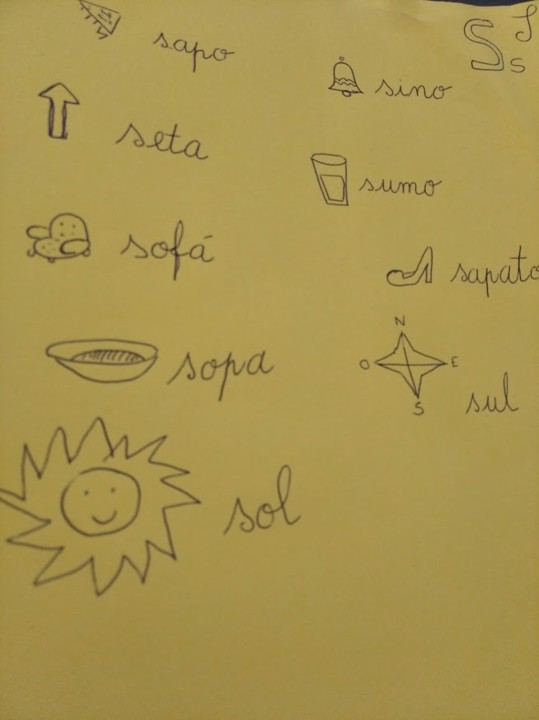 S S
s
sapo
sino
seta
sumo
sofá
sapato
sopa
N
O E
S
sul
sol